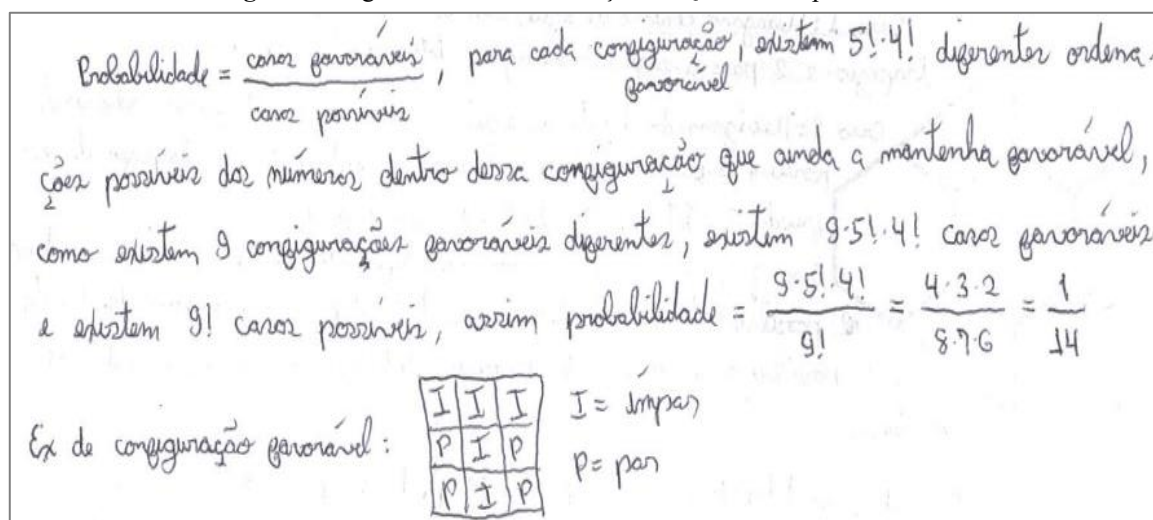 Probabilidade = casos favoráveis / casos possíveis, para cada configuração favorável, existem 5!·4! diferentes ordena-
ções possíveis dos números dentro dessa configuração que ainda a mantenha favorável,
como existem 9 configurações favoráveis diferentes, existem 9·5!·4! casos favoráveis
e existem 9! casos possíveis, assim probabilidade = 9·5!·4! / 9! = 4·3·2 / 8·7·6 = 1 / 14
Ex de configuração favorável:
I I I
P I P
P I P
I = ímpar
P = par